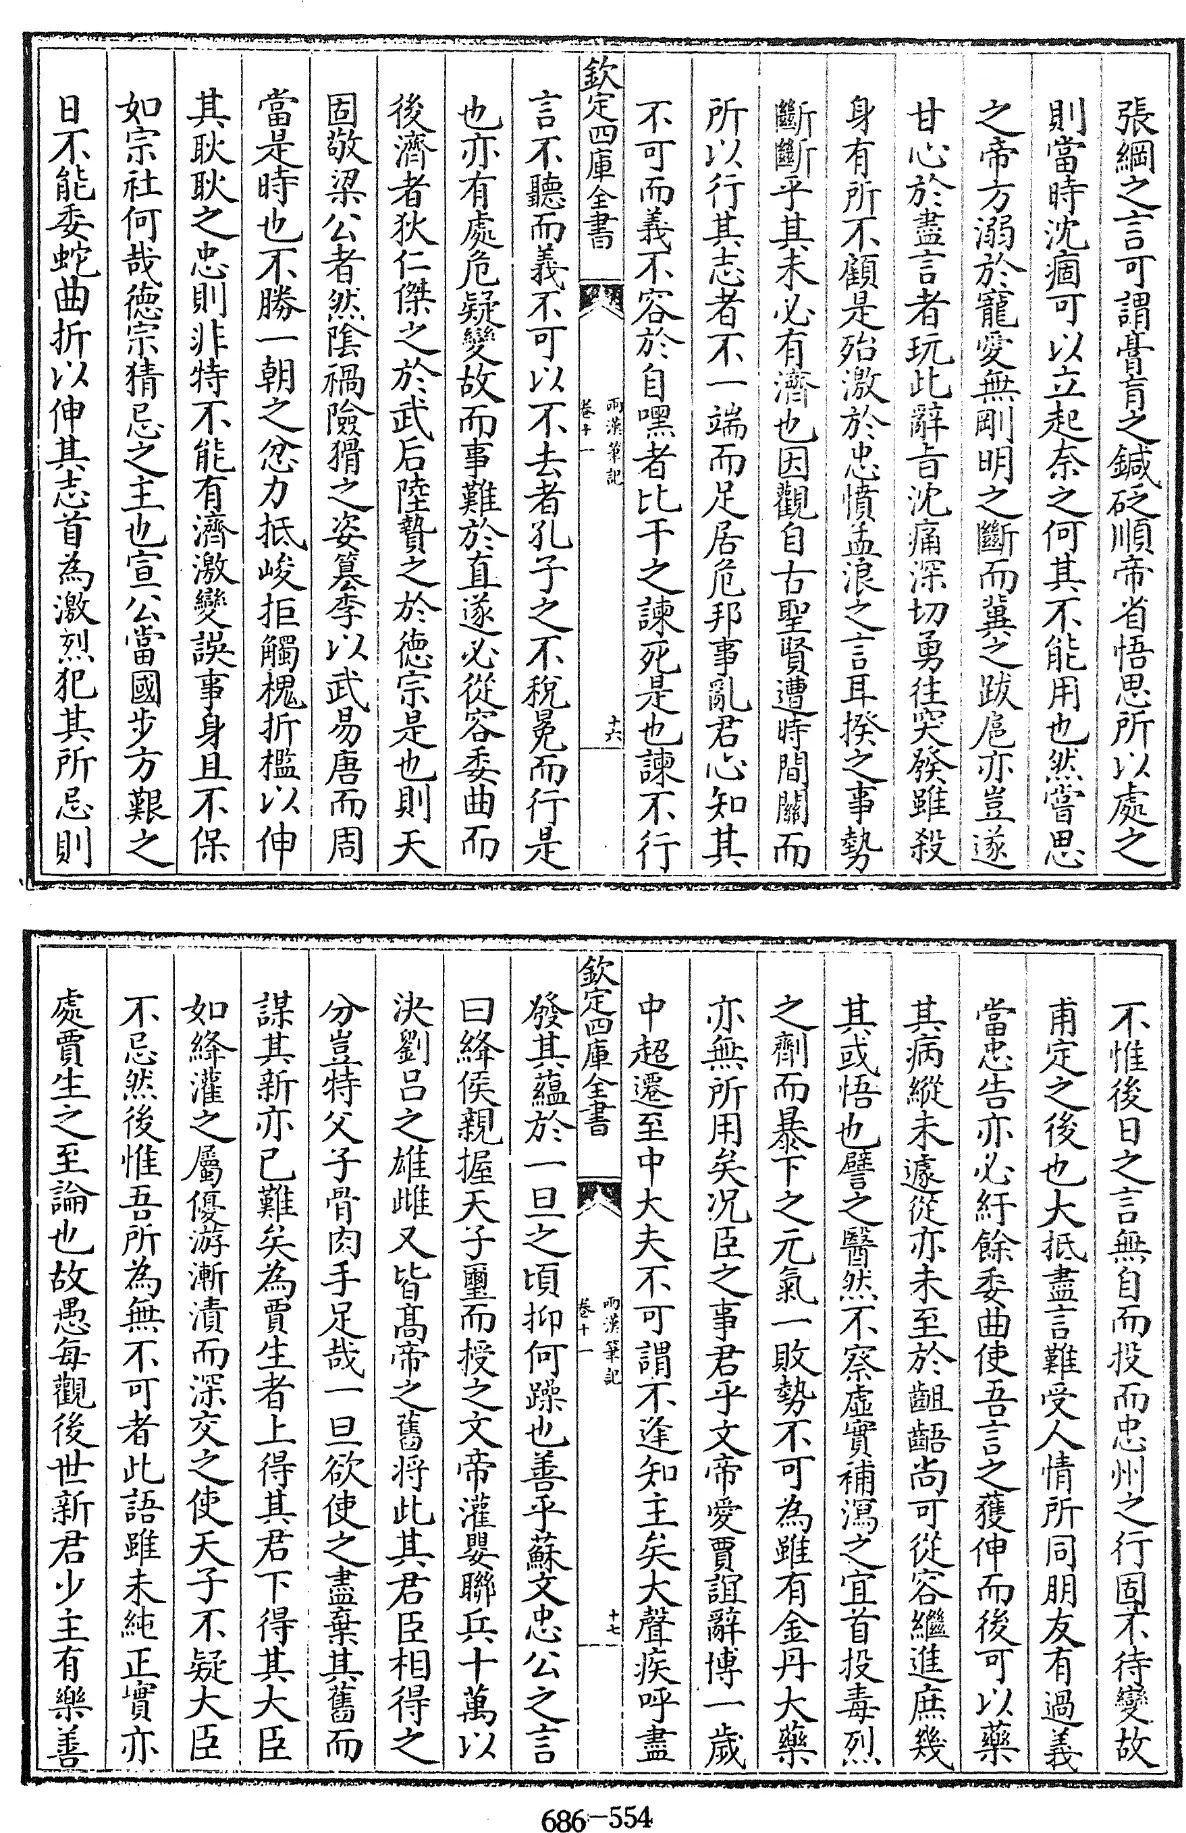 張綱之言可謂膏肓之鍼砭順帝省悟思所以處之
則當時沈痼可以立起奈之何其不能用也然嘗思
之帝方溺於寵愛無剛明之斷而冀之跋扈亦豈遂
甘心於盡言者玩此辭旨沈痛深切勇往突發雖殺
身有所不顧是殆激於忠憤孟浪之言耳揆之事勢
斷斷乎其未必有濟也因觀自古聖賢遭時間關而
所以行其志者不一端而足居危邦事亂君心知其
不可而義不容於自嘿者比干之諫死是也諫不行
欽定四庫全書
兩漢筆記
卷十一
十六
言不聽而義不可以不去者孔子之不稅冕而行是
也亦有處危疑變故而事難於直遂必從容委曲而
後濟者狄仁傑之於武后陸贄之於德宗是也則天
固敬梁公者然陰禍險猾之姿簒李以武易唐而周
當是時也不勝一朝之忿力抵峻拒觸槐折檻以伸
其耿耿之忠則非特不能有濟激變誤事身且不保
如宗社何哉德宗猜忌之主也宣公當國步方艱之
日不能委蛇曲折以伸其志首為激烈犯其所忌則
不惟後日之言無自而投而忠州之行固不待變故
甫定之後也大抵盡言難受人情所同朋友有過義
當忠告亦必紆餘委曲使吾言之獲伸而後可以藥
其病縱未遽從亦未至於齟齬尚可從容繼進庶幾
其或悟也譬之醫然不察虛實補瀉之宜首投毒烈
之劑而暴下之元氣一敗勢不可為雖有金丹大藥
亦無所用矣况臣之事君乎文帝愛賈誼辭博一歲
中超遷至中大夫不可謂不逢知主矣大聲疾呼盡
欽定四庫全書
兩漢筆記
卷十一
十七
發其蘊於一旦之頃抑何躁也善乎蘇文忠公之言
曰絳侯親握天子璽而授之文帝灌嬰聯兵十萬以
決劉吕之雄雌又皆髙帝之舊將此其君臣相得之
分豈特父子骨肉手足哉一旦欲使之盡棄其舊而
謀其新亦已難矣為賈生者上得其君下得其大臣
如絳灌之屬優游漸漬而深交之使天子不疑大臣
不忌然後惟吾所為無不可者此語雖未純正實亦
處賈生之至論也故愚每觀後世新君少主有樂善
686-554